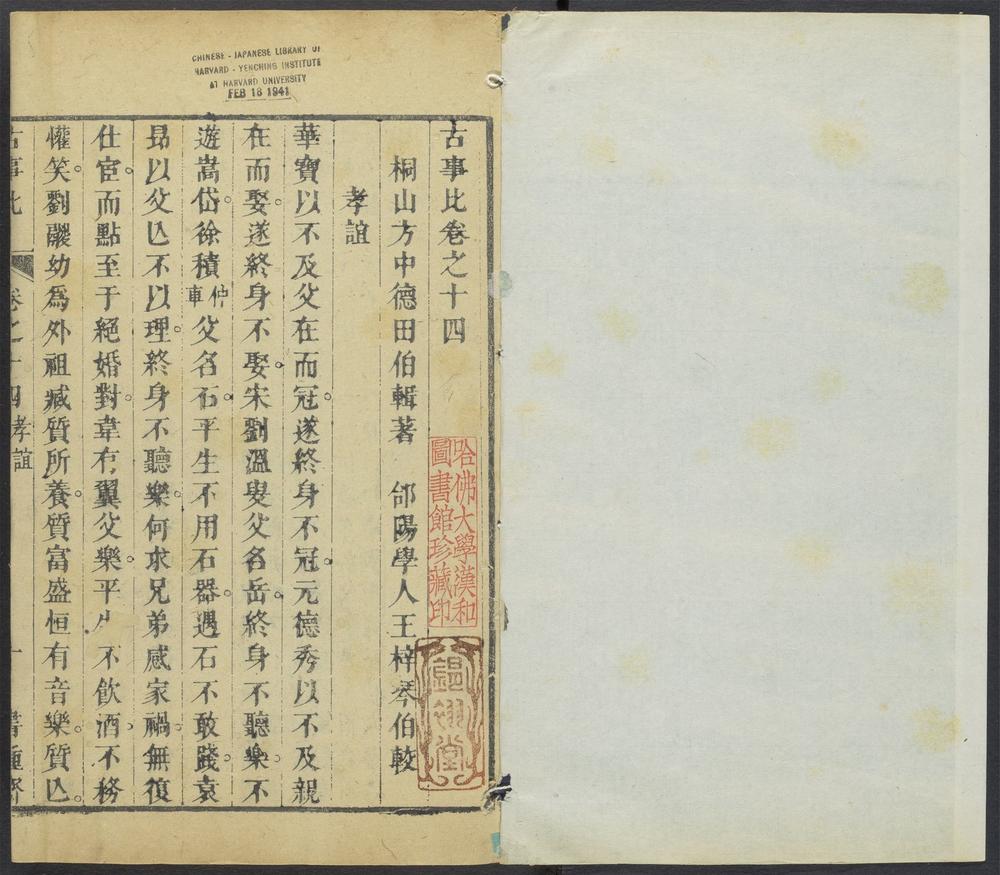 CHINESE - JAPANESE LIBRARY OF
HARVARD - YENCHING INSTITUTE
AT HARVARD UNIVERSITY
FEB 18 1941
古事比卷之十四
桐山方中德田伯輯著 郃陽學人王梓琴伯較
哈佛大學漢和
圖書館珍藏印
孝誼
華寶以不及父在而冠。遂終身不冠。元德秀以不及親
在而娶。遂終身不娶。宋劉溫叟父名岳。終身不聽樂。不
遊嵩岱。徐積仲車父名石。平生不用石器。遇石不敢踐。袁
昻以父亾不以理。終身不聽樂。何求兄弟感家禍。無復
仕宦。而點至于絕婚對。韋有翼父樂。平生不飲酒。不務
懽笑。劉瓛幼爲外祖臧質所養。質富盛恒有音樂。質亾。
古事比 卷之十四孝誼 一